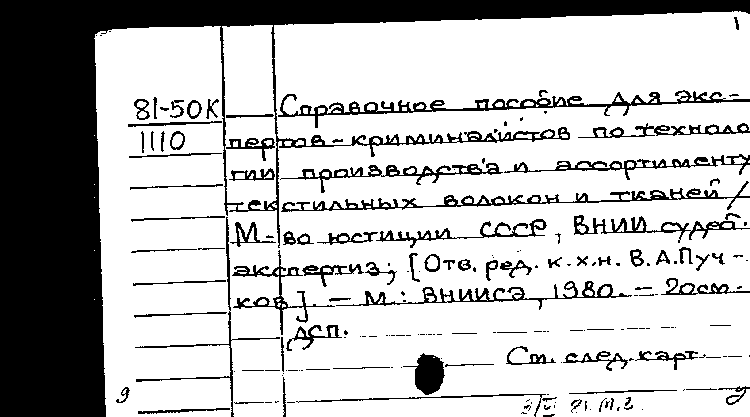 1
81-50К Справочное пособие для экс-
1110 пертов-криминалистов по техноло
гии производства и ассортименту
текстильных волокон и тканей /
М-во юстиции СССР, ВНИИ судеб.
экспертиз; [Отв. ред. к.х.н. В.А.Пуч-
ков]. - М.: ВНИИСЭ, 1980. - 20см.-
ДСП.
См. след. карт.
9